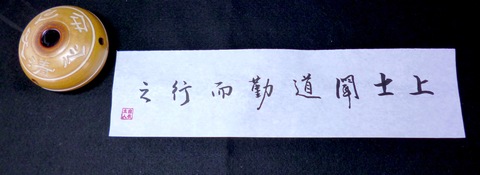 上士聞道勤而行之